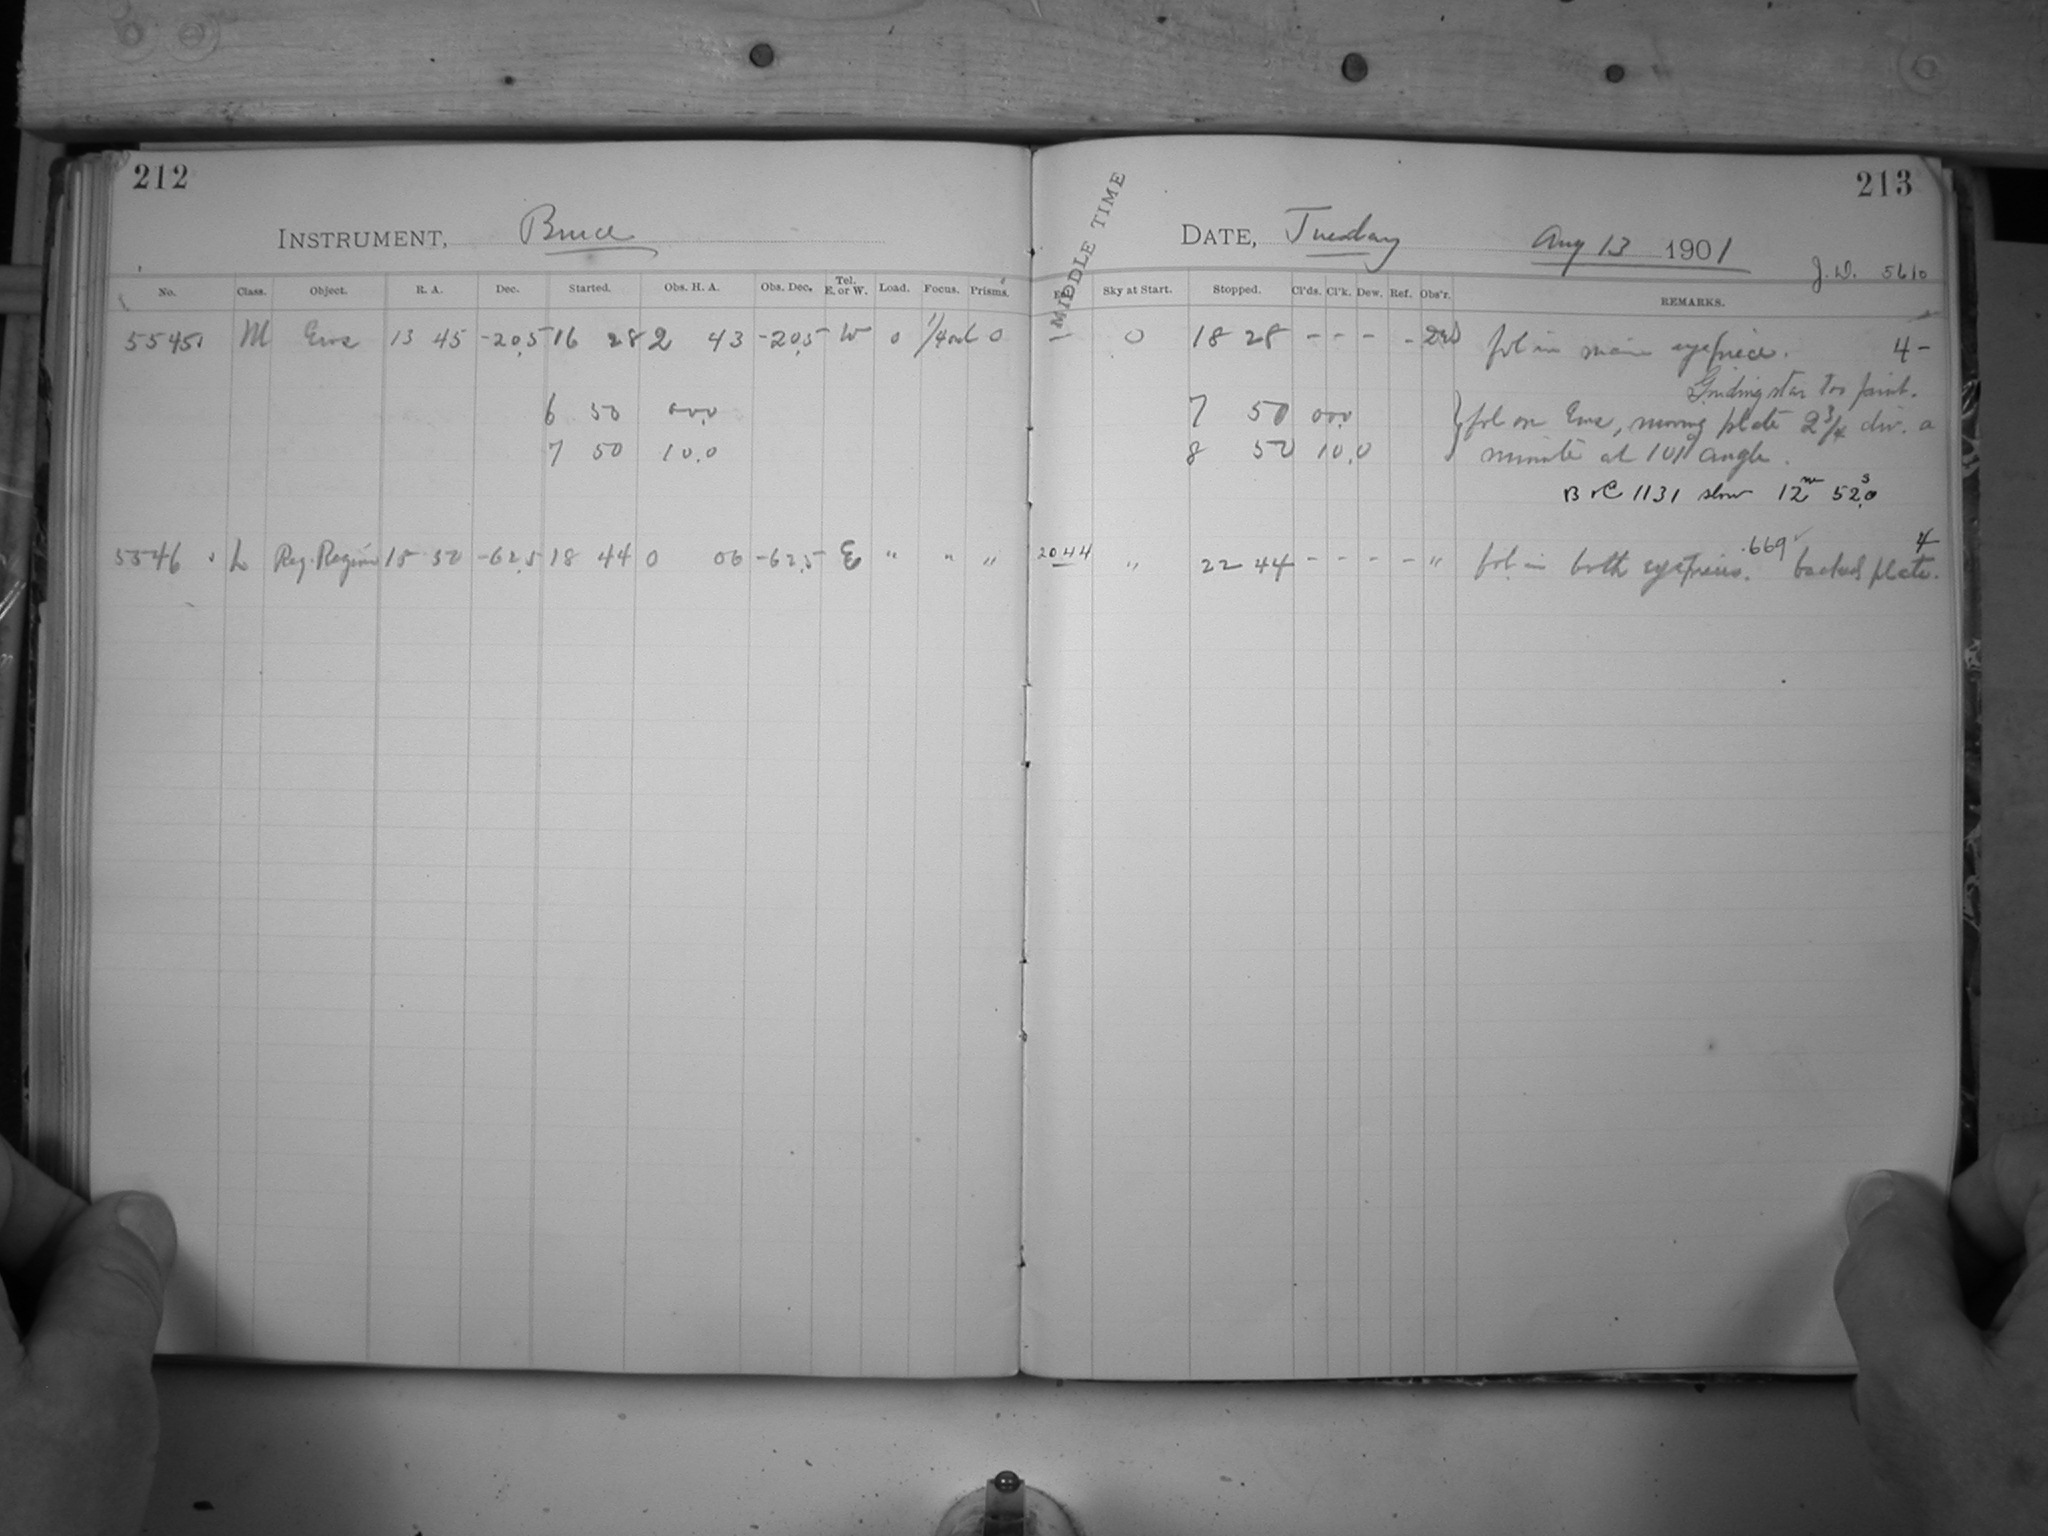 212
213
INSTRUMENT, Bruce
MIDDLE TIME
DATE, Tuesday Aug 13 1901
J.D. 5610
No. Class. Object. R. A. Dec. Started. Obs. H. A. Obs. Dec. Tel. E. or W. Load. Focus. Prisms. Sky at Start. Stopped. Cl'ds. Cl'k. Dew. Ref. Obs'r. REMARKS.
5545 M Eros 13 45 -20.5 16 28 2 43 -20.5 W 0 0 0 18 28 - - - - fol in main eyepiece. 4-
Guiding star too faint.
6 50 00.0 7 50 00.0 } fol on Eros, moving plate 2 3/4 div. a
7 50 10.0 8 50 10.0 minute at 101° angle.
B & C 1131 slow 12m 52.0s
5546 L Reg. Region 15 30 -62.5 18 44 0 06 -62.5 E " " " 20 44 " 22 44 - - - - " fol. in both eyepieces. .669 backed plate. 4